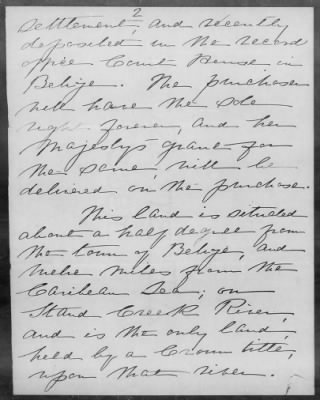 2
settlement, and recently
deposited in the record
office Court House in
Belize. The purchaser
will have the sole
right forever, and her
Majestys grant for
the same, will be
delivered on the purchase.
This land is situated
about a half degree from
the town of Belize, and
twelve miles from the
Caribean Sea; on
Stand Creek River,
and is the only land,
held by a Crown title,
upon that river.